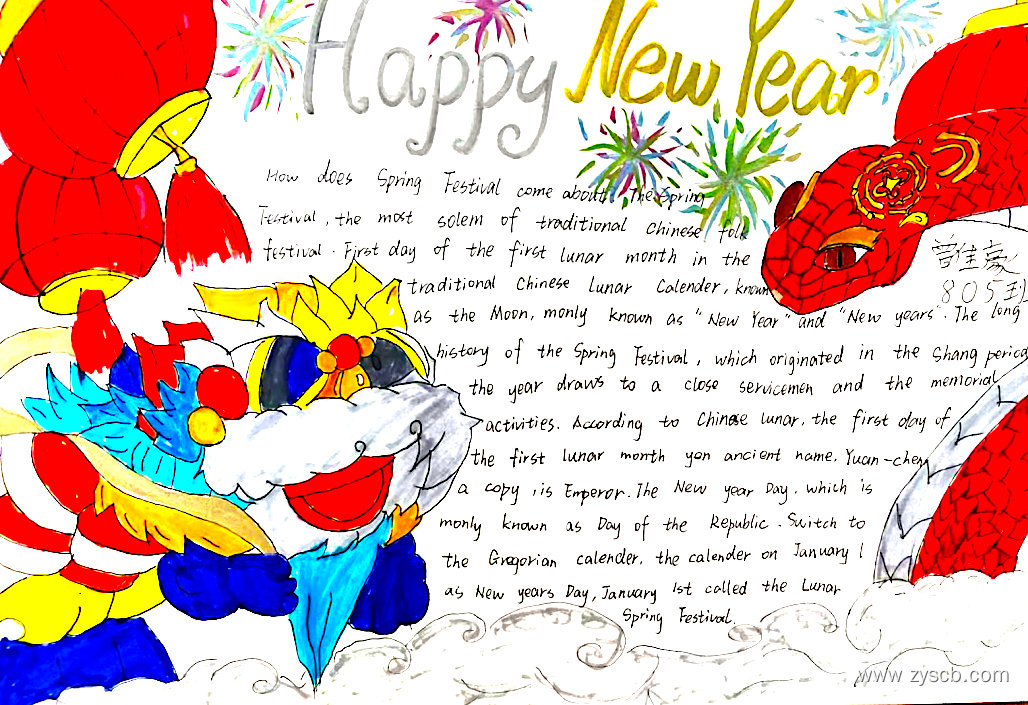 Happy New Year
How does Spring Festival come about. The Spring
Festival, the most solem of traditional Chinese folk
festival. First day of the first lunar month in the
traditional Chinese lunar Calender, known
as the Moon, monly known as "New Year" and "New years". The long
history of the Spring Festival, which originated in the Shang period
the year draws to a close servicemen and the memorial
activities. According to Chinese lunar, the first day of
the first lunar month yon ancient name, Yuan-chen
a copy, is Emperor. The New year Day, which is
monly known as Day of the Republic. Switch to
the Gregorian calender, the calender on January 1
as New years Day, January 1st called the Lunar
Spring Festival.
曾佳豪
805班
www.zyscb.com